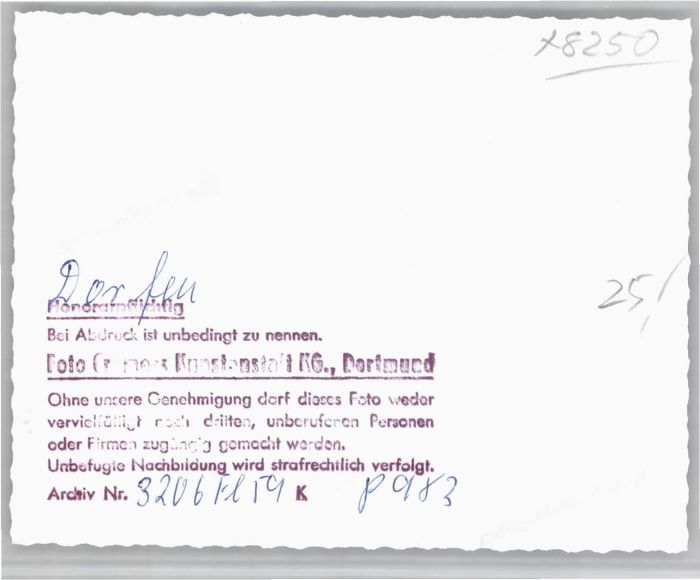 x8250
Dorfen
25,/
Honorarpflichtig
Bei Abdruck ist unbedingt zu nennen.
Foto Cramers Kunstanstalt KG., Dortmund
Ohne unsere Genehmigung darf dieses Foto weder
vervielfältigt noch dritten, unberufenen Personen
oder Firmen zugängig gemacht werden.
Unbefugte Nachbildung wird strafrechtlich verfolgt.
Archiv Nr. 3206 Fl 59 K P 983